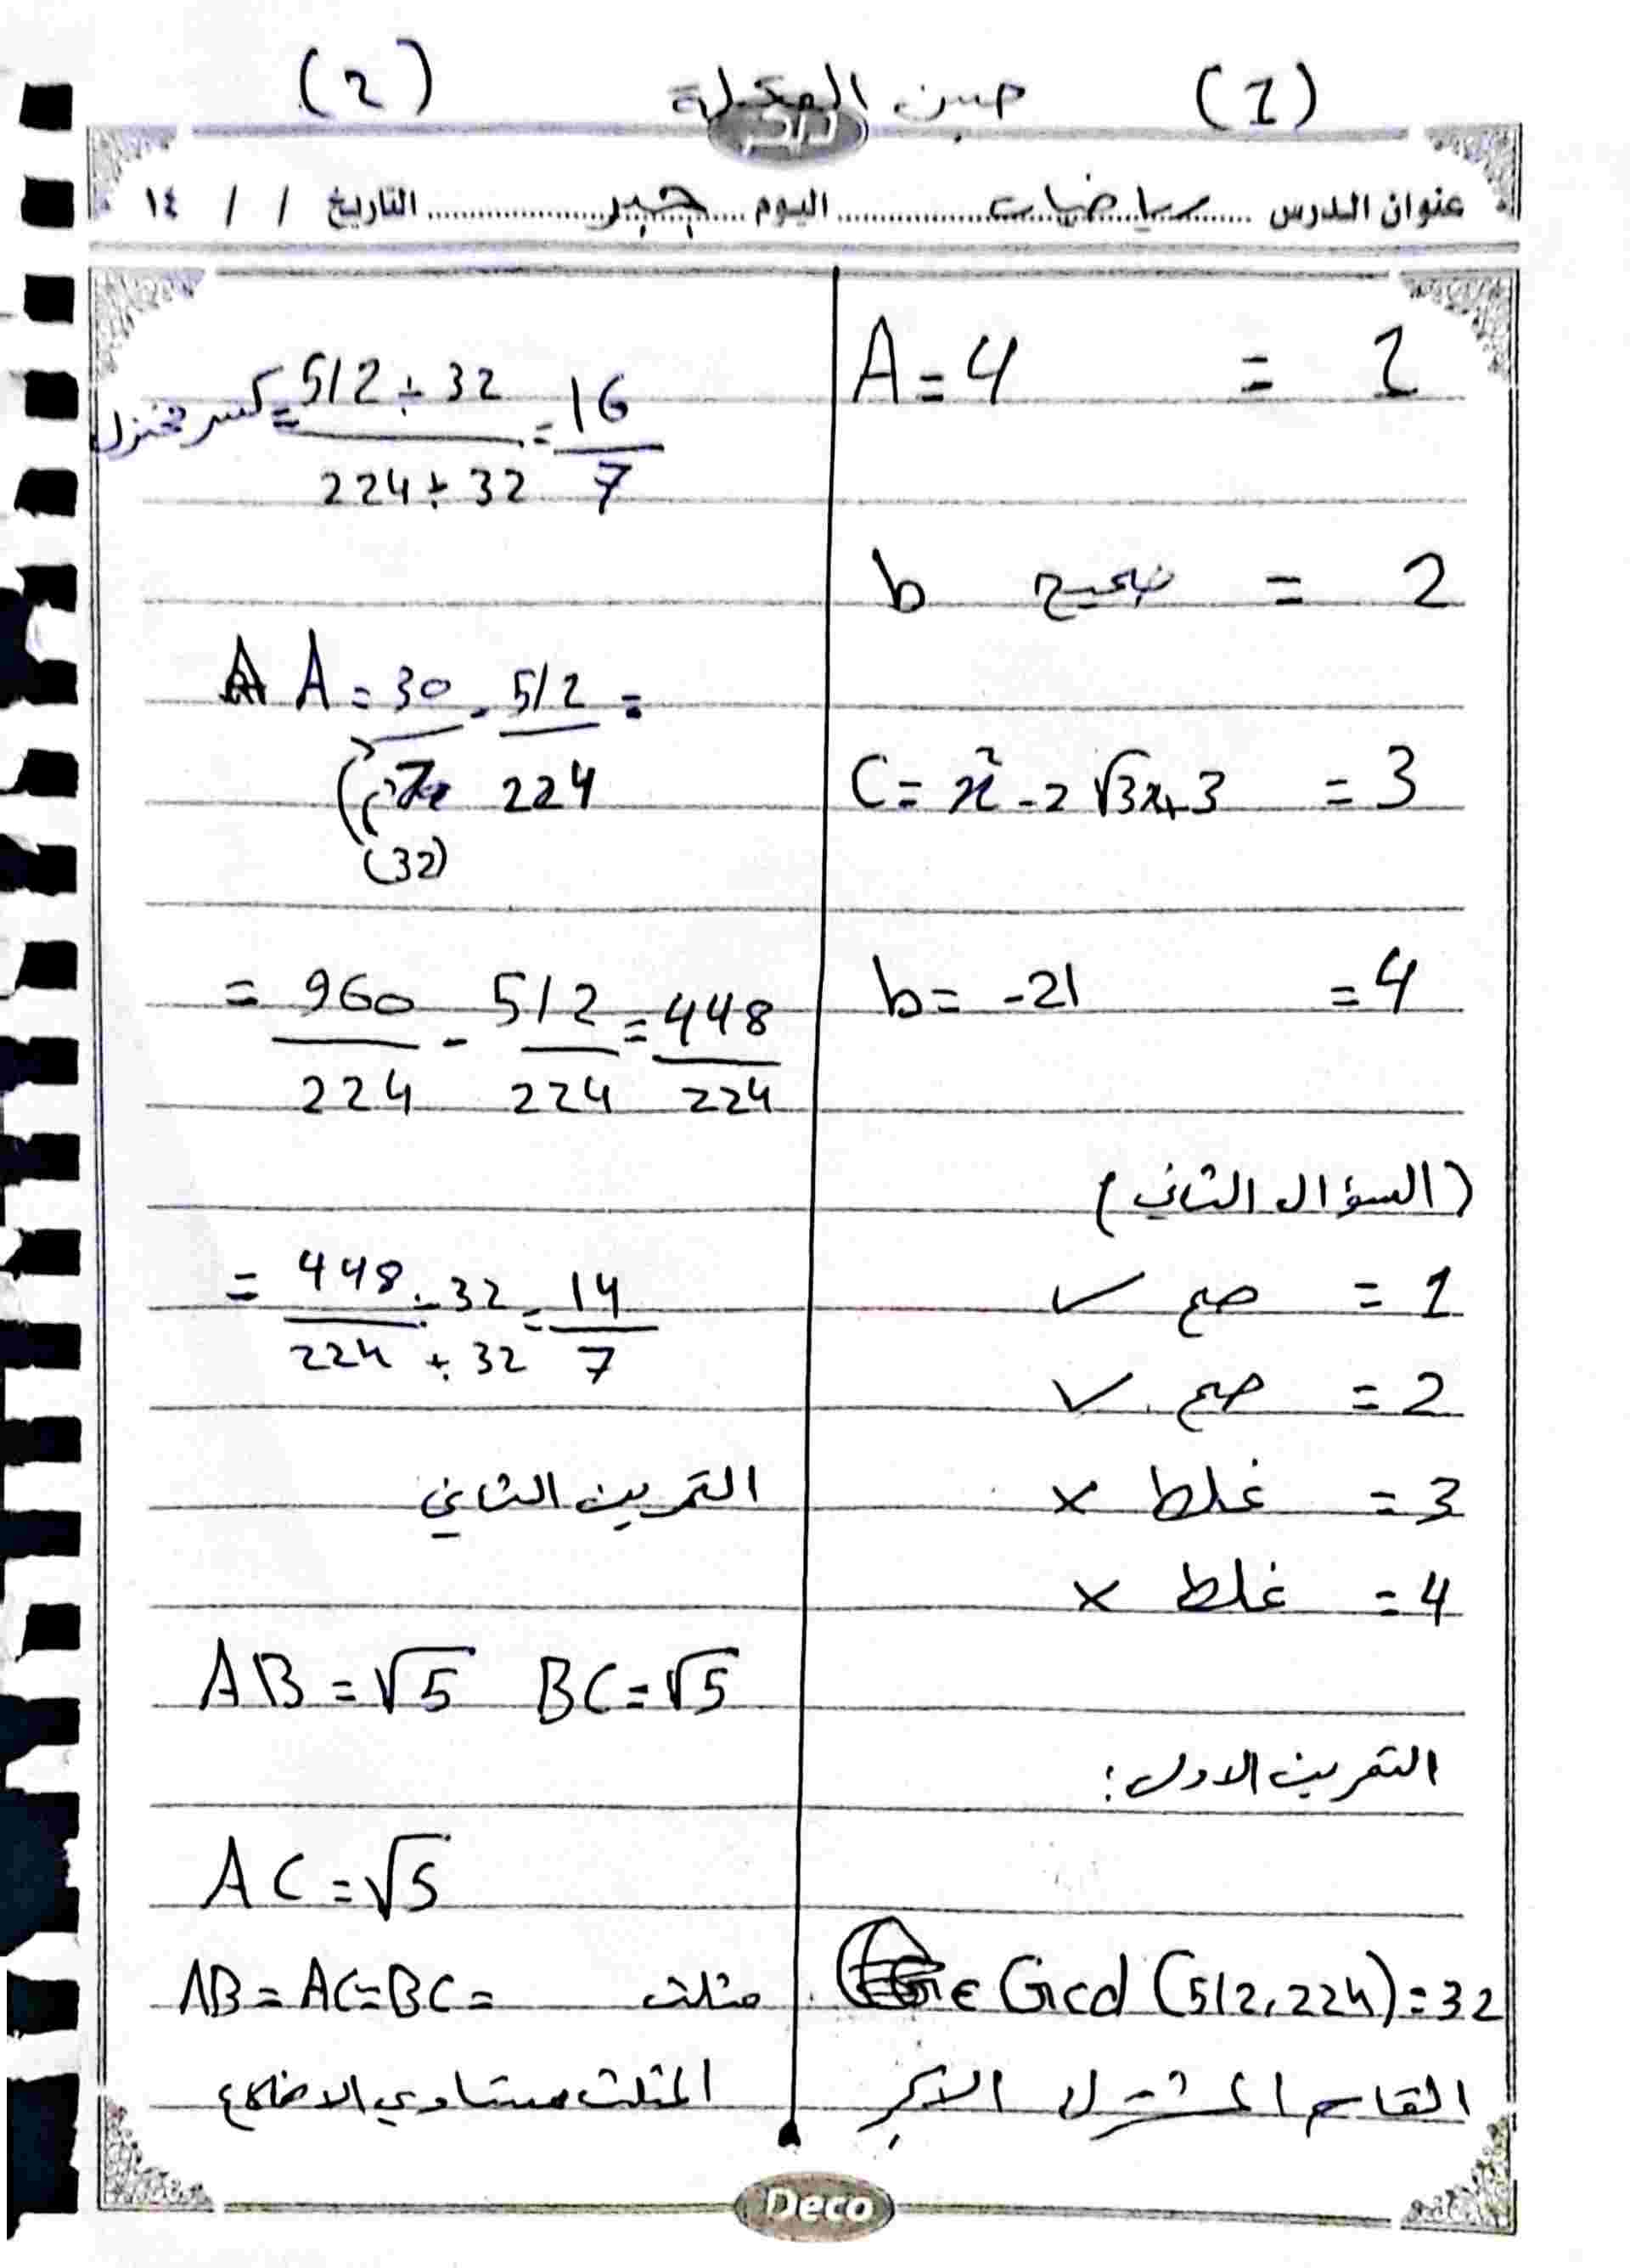 (1)
(2)
عنوان الدرس رياضيات اليوم جبر التاريخ / / ١٤
A = 4 = 1
b صحيح = 2
C = x² - 2√3x + 3 = 3
b = -21 = 4
(السؤال الثاني)
1 = صح ✓
2 = صح ✓
3 = غلط ×
4 = غلط ×
التمرين الاول:
Gcd (512, 224) = 32
القاسم المشترك الاكبر
512 ÷ 32 / 224 ÷ 32 = 16 / 7 = كسر مختزل
A = 30 / 7 - 512 / 224 =
(32)
= 960 / 224 - 512 / 224 = 448 / 224
= 448 ÷ 32 / 224 ÷ 32 = 14 / 7
التمرين الثاني
AB = √5 BC = √5
AC = √5
AB = AC = BC = مثلث
المثلث متساوي الاضلاع
Deco